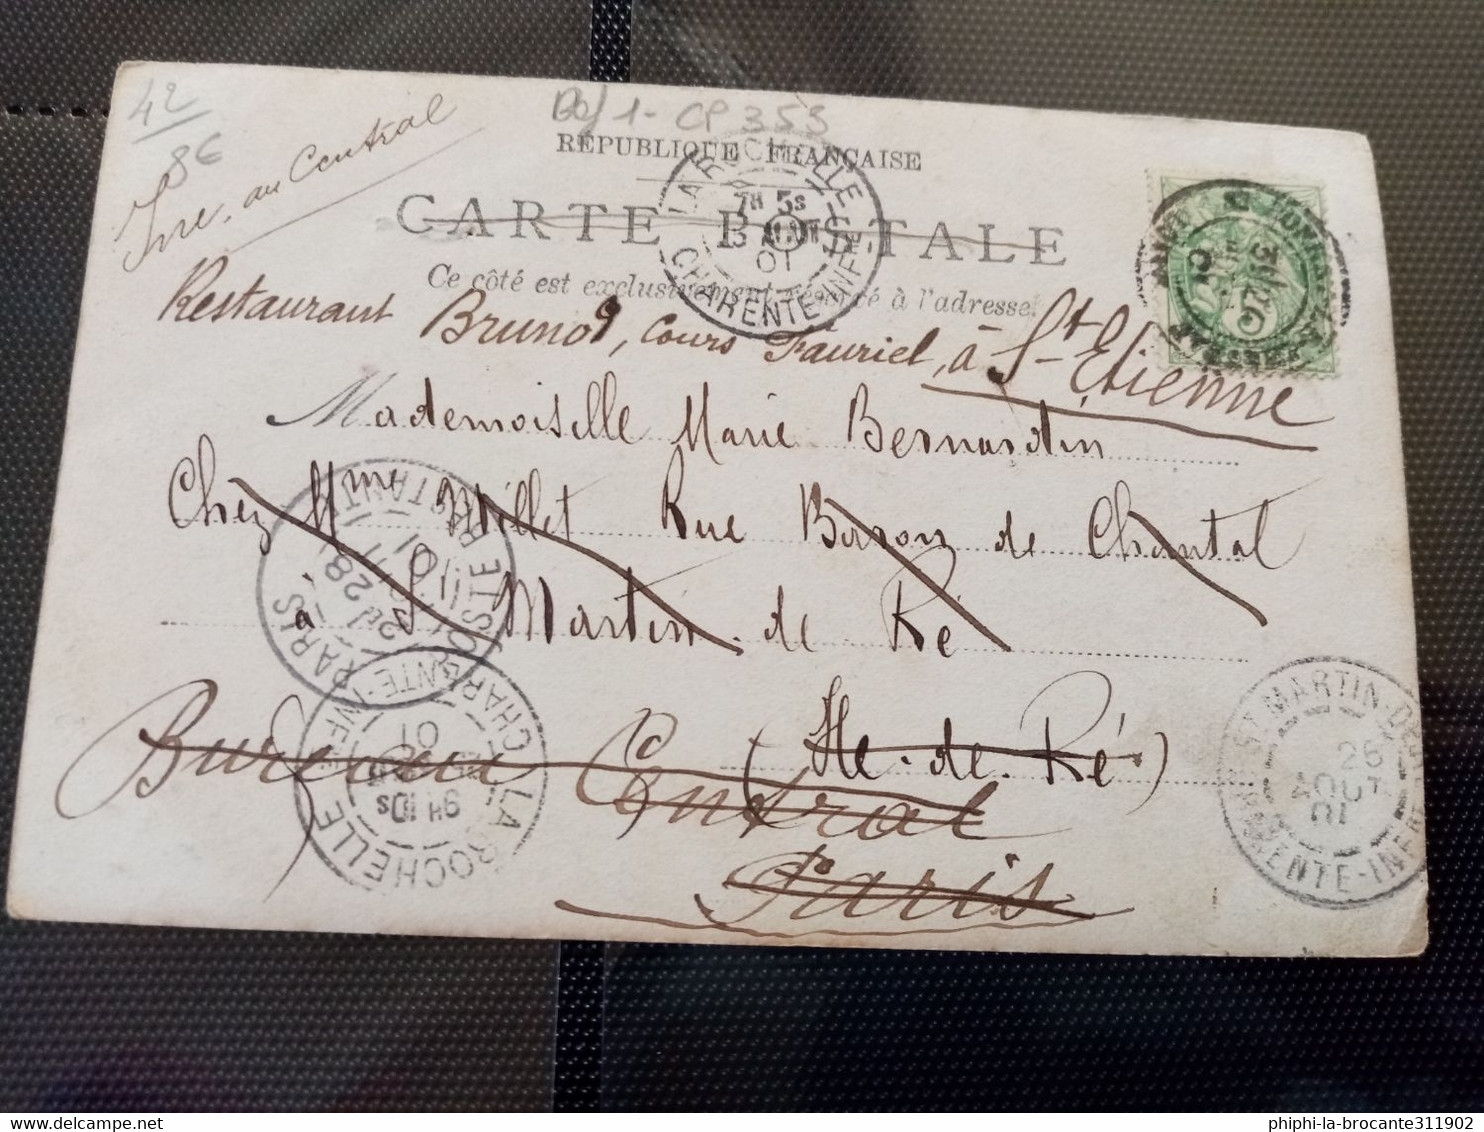 42
8€
Inc. au Central
1 - CP 353
RÉPUBLIQUE FRANÇAISE
CARTE POSTALE
Ce côté est exclusivement réservé à l'adresse.
LA ROCHELLE
7H 5S
01
CHARENTE-INFRE
Restaurant Brunos, cours Fauriel, à St-Etienne
Mademoiselle Marie Bernardin
Chez Mme Millet Rue Baron de Chantal
à St Martin de Ré
(Ile-de-Ré)
Bureau Central
Paris
PARIS
28
01
POSTE RESTANTE
LA ROCHELLE
9H 10S
01
CHARENTE-INFRE
ST MARTIN-DE-RÉ
26
AOUT
01
CHARENTE-INFRE
phiphi-la-brocante311902